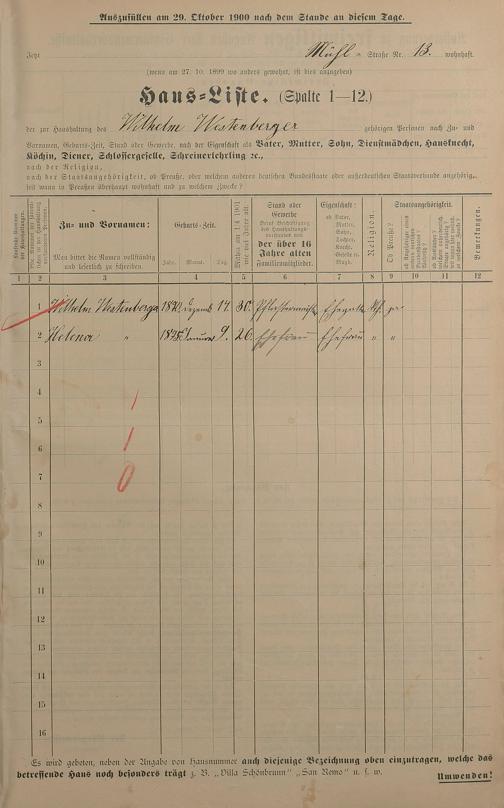 Auszufüllen am 29. Oktober 1900 nach dem Stande an diesem Tage.
Jetzt Mühl-Straße Nr. 13. wohnhaft.
(wenn am 27. 10. 1899 wo anders gewohnt, ist dies anzugeben)
Haus-Liste. (Spalte 1—12.)
der zur Haushaltung des Wilhelm Westenberger gehörigen Personen nach Zu- und
Vornamen, Geburts-Zeit, Stand oder Gewerbe, nach der Eigenschaft als Vater, Mutter, Sohn, Dienstmädchen, Hausknecht,
Köchin, Diener, Schlossergeselle, Schreinerlehrling ec.,
nach der Religion,
nach der Staatsangehörigkeit, ob Preuße, oder welchem anderen deutschen Bundesstaate oder außerdeutschen Staatsverbande angehörig,
seit wann in Preußen überhaupt wohnhaft und zu welchem Zwecke?
Zu- und Vornamen:
Man bittet die Namen vollständig
und leserlich zu schreiben.
Geburts-Zeit.
Jahr. Monat. Tag.
Stand oder
Gewerbe
der über 16
Jahre alten
Familienmitglieder.
Eigenschaft:
ob Vater,
Mutter,
Sohn,
Tochter,
Knecht,
Geselle u.
Magd.
Religion.
Staatsangehörigkeit.
Ob Preuße?
Bemerkungen.
1 2 3 4 5 6 7 8 9 10 11 12
1 Wilhelm Westenberger 1870 Dezemb 14 30. Pflastermeister Ehegatte
2 Helena " 1875 Januar 9. 26. Ehefrau Ehefrau " "
3
4
5
6
7
8
9
10
11
12
13
14
15
16
1
1
0
Es wird gebeten, neben der Angabe von Hausnummer auch diejenige Bezeichnung oben einzutragen, welche das
betreffende Haus noch besonders trägt z. B. „Villa Schönbrunn" „San Remo" u. s. w.
Umwenden!